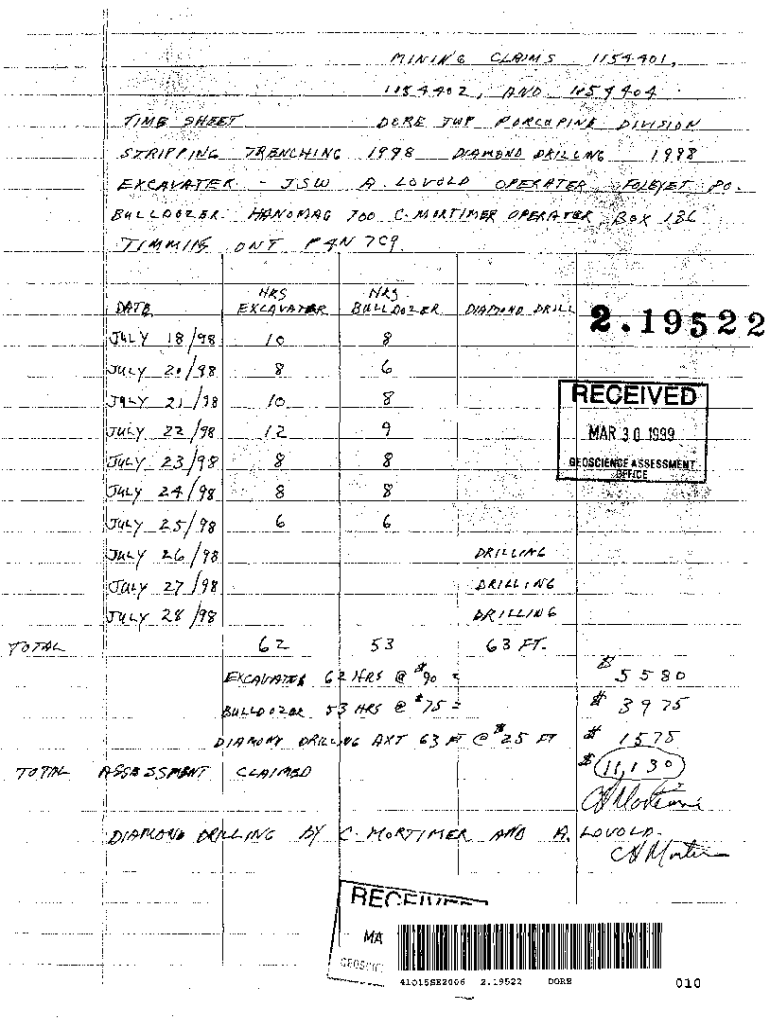 MINING CLAIMS 1154401,
1154402, AND 1154404.
TIME SHEET DORE TWP PORCUPINE DIVISION
STRIPPING TRENCHING 1998 DIAMOND DRILLING 1998
EXCAVATER - JSW A. LOVOLD OPERATER FOLEYET PO.
BULLDOZER HANOMAG 700 C. MORTIMER OPERATER BOX 186
TIMMINS ONT P4N 7C9.
DATE HRS EXCAVATER HRS BULLDOZER DIAMOND DRILL
2.19522
JULY 18/98 10 8
JULY 20/98 8 6
JULY 21/98 10 8
JULY 22/98 12 9
JULY 23/98 8 8
JULY 24/98 8 8
JULY 25/98 6 6
RECEIVED
MAR 30 1999
GEOSCIENCE ASSESSMENT
OFFICE
JULY 26/98 DRILLING
JULY 27/98 DRILLING
JULY 28/98 DRILLING
TOTAL 62 53 63 FT.
EXCAVATER 62 HRS @ $90 = $ 5580
BULLDOZER 53 HRS @ $75 = $ 3975
DIAMOND DRILLING AXT 63 FT @ $25 FT $ 1575
TOTAL ASSESSMENT CLAIMED $ 11,130
C H Mortimer
DIAMOND DRILLING BY C. MORTIMER AND A. LOVOLD.
C H Mortimer
RECEIVED
MA
GEOSCIE
41015SE2006 2.19522 DORE
010